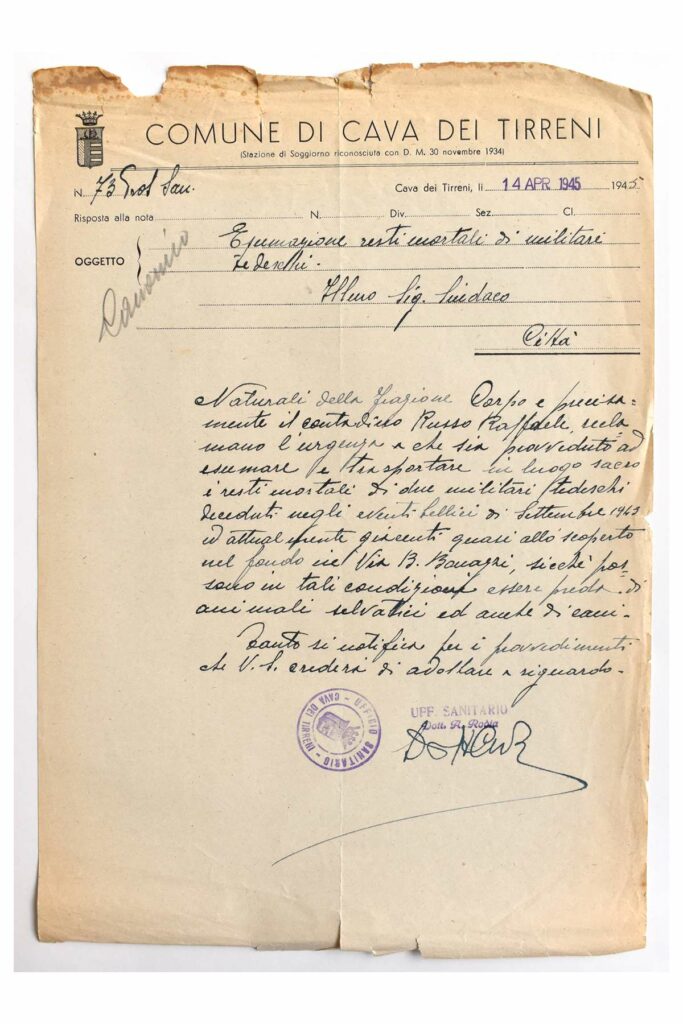 COMUNE DI CAVA DEI TIRRENI
(Stazione di Soggiorno riconosciuta con D. M. 30 novembre 1934)
N. 73 Prot San. Cava dei Tirreni, li 14 APR 1945 1945
Risposta alla nota N. Div. Sez. Cl.
OGGETTO Esumazione resti mortali di militari
tedeschi.
Canonico
Illmo Sig. Sindaco
Città
Naturali della frazione Corpo e precisa-
mente il contadino Russo Raffaele, recla-
mano l'urgenza a che sia provveduto ad
esumare e trasportare in luogo sacro
i resti mortali di due militari tedeschi
deceduti negli eventi bellici di Settembre 1943
ed attualmente giacenti quasi allo scoperto
nel fondo in Via B. sicchè pos-
sono in tali condizioni essere preda di
animali selvatici ed anche di cani.
Tanto si notifica per i provvedimenti
che V. S. crederà di adottare a riguardo.
UFFICIO SANITARIO - CAVA DEI TIRRENI
UFF. SANITARIO
Dott. A.